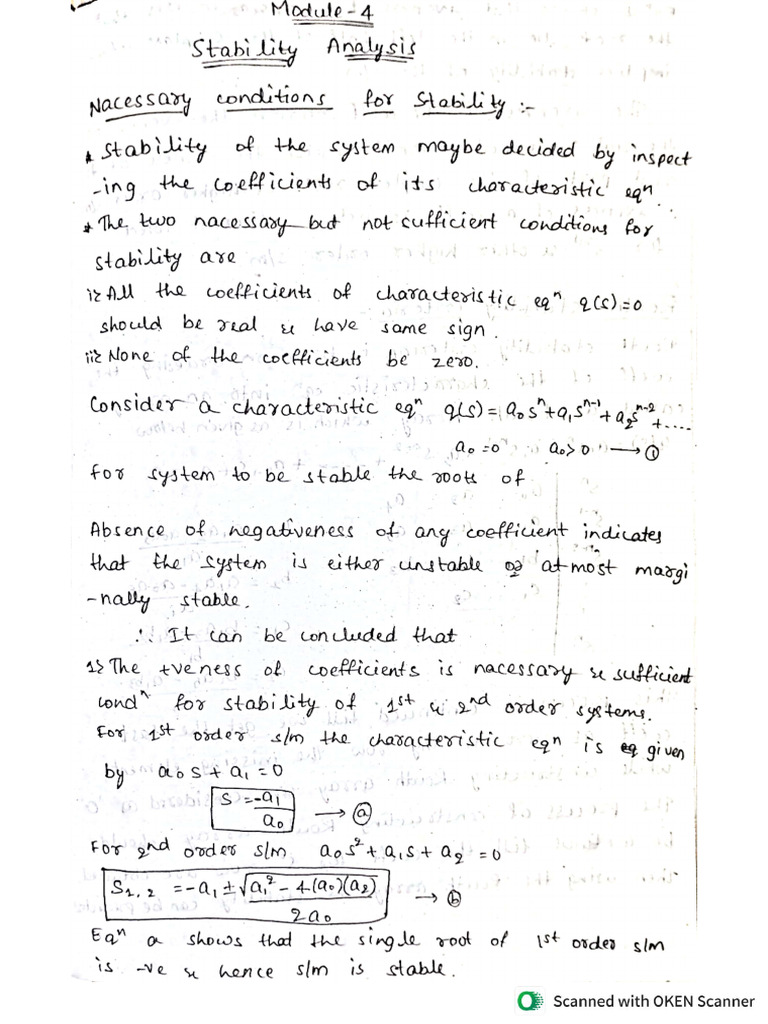 Module-4
Stability Analysis
Nacessary conditions for Stability :-
* Stability of the system maybe decided by inspect
-ing the coefficients of its characteristic eqⁿ.
* The two nacessary but not sufficient conditions for
stability are
i} All the coefficients of characteristic eqⁿ q(s)=0
should be real & have same sign.
ii} None of the coefficients be zero.
Consider a characteristic eqⁿ q(s) = a₀sⁿ+a₁sⁿ⁻¹+a₂sⁿ⁻²+....
a₀=0 a₀>0 → ①
for system to be stable the roots of
Absence of negativeness of any coefficient indicates
that the system is either unstable or at most margi
-nally stable.
∴ It can be concluded that
1} The +veness of coefficients is nacessary & sufficient
condⁿ for stability of 1st & 2nd order systems.
For 1st order s/m the characteristic eqⁿ is eq given
by a₀s + a₁ = 0
s = -a₁/a₀ → ⓐ
For 2nd order s/m a₀s² + a₁s + a₂ = 0
S₁,₂ = -a₁ ± √(a₁² - 4(a₀)(a₂)) / 2a₀ → ⓑ
Eqⁿ a shows that the single root of 1st order s/m
is -ve & hence s/m is stable.
Scanned with OKEN Scanner